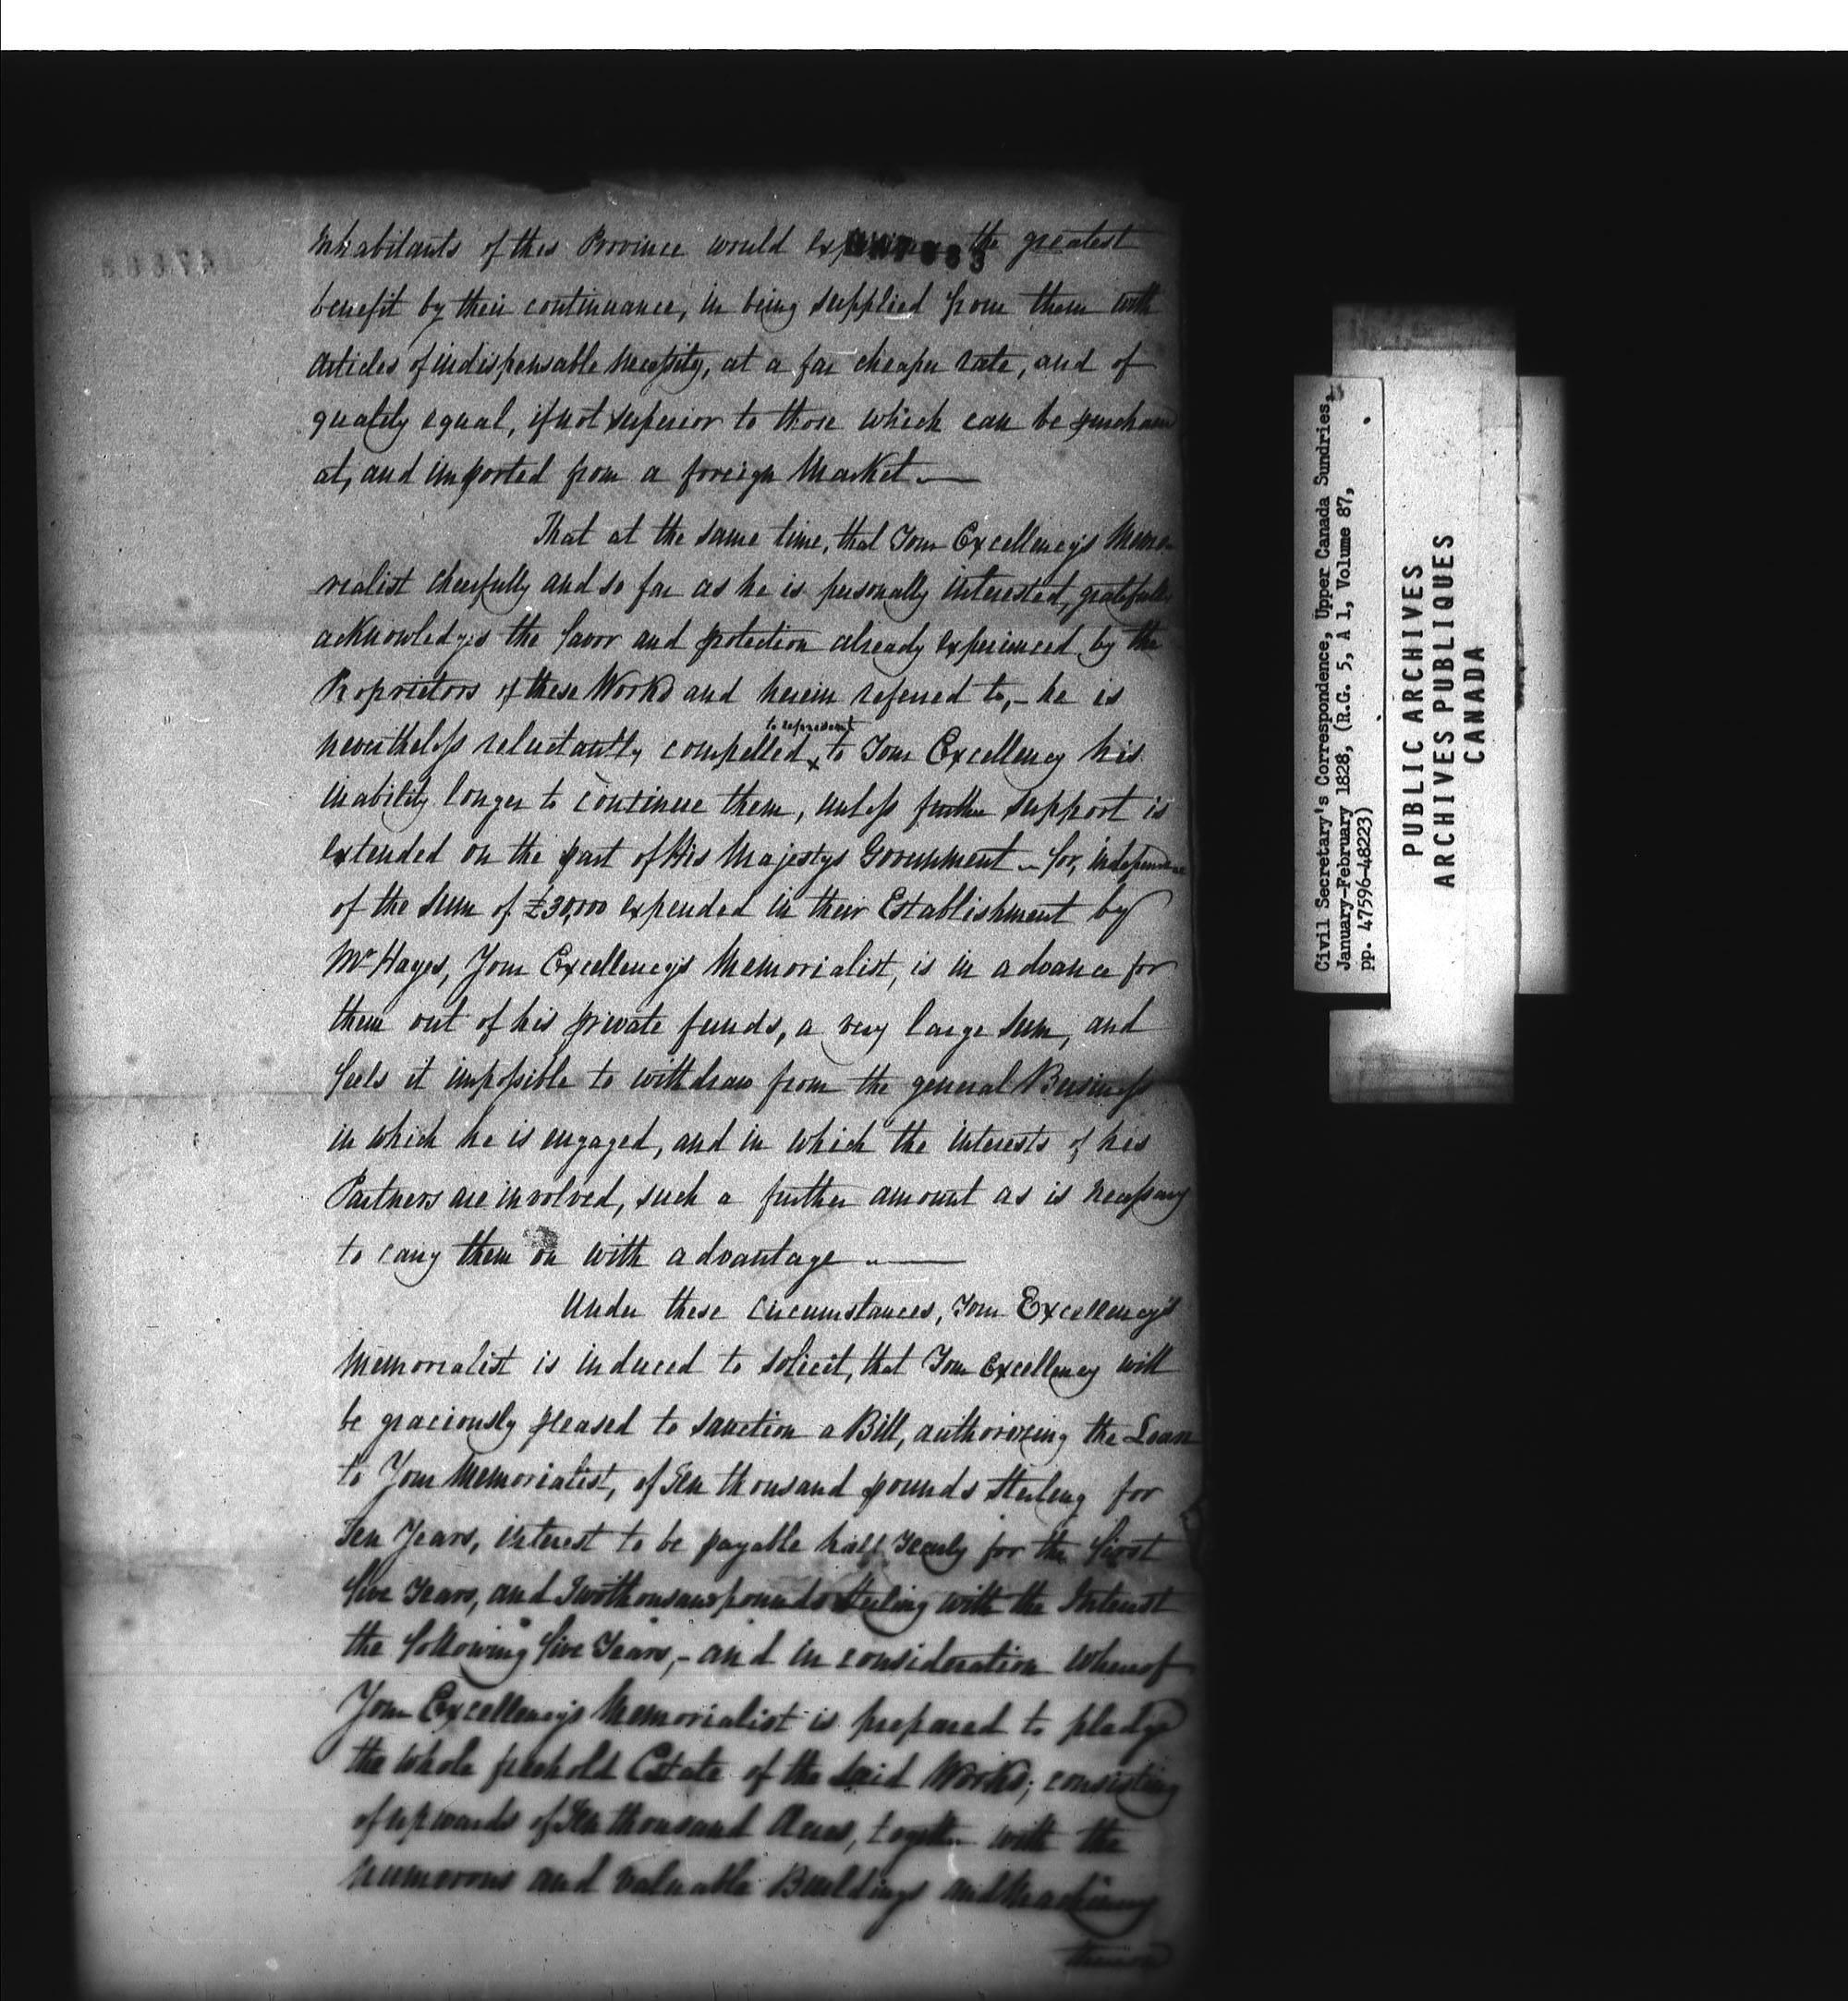 Inhabitants of this Province would experience the greatest
benefit by their continuance, in being supplied from them with
Articles of indispensable necessity, at a far cheaper rate, and of
quality equal, if not superior to those which can be purchased
at, and imported from a foreign Market.—
That at the same time, that Your Excellency's Memo-
rialist cheerfully and so far as he is personally interested, gratefully
acknowledges the favor and protection already experienced by the
Proprietors of these Works and herein refered to,- he is
to represent
nevertheless reluctantly compelled x to Your Excellency his
inability longer to continue them, unless further support is
extended on the part of His Majestys Government - for, independent
of the sum of £30,000 expended in their Establishment by
Mr Hayes, Your Excellency's Memorialist, is in advance for
them out of his private funds, a very large sum, and
feels it impossible to withdraw from the general Business
in which he is engaged, and in which the interests of his
Partners are involved, such a further amount as is necessary
to carry them on with advantage .—
Under these circumstances, Your Excellency's
Memorialist is induced to solicit, that Your Excellency will
be graciously pleased to sanction a Bill, authorizing the Loan
to Your Memorialist, of Ten thousand pounds sterling for
Ten Years, interest to be payable half Yearly for the first
five Years, and Two thousand pounds sterling with the Interest
the following five Years,- and in consideration whereof
Your Excellency's Memorialist is prepared to pledge
the whole freehold Estate of the said Works; consisting
of upwards of Ten thousand Acres, together with the
numerous and valuable Buildings and Machinery
thereon
Civil Secretary's Correspondence, Upper Canada Sundries,
January-February 1828, (R.G. 5, A 1, Volume 87,
pp. 47596-48223)
PUBLIC ARCHIVES
ARCHIVES PUBLIQUES
CANADA